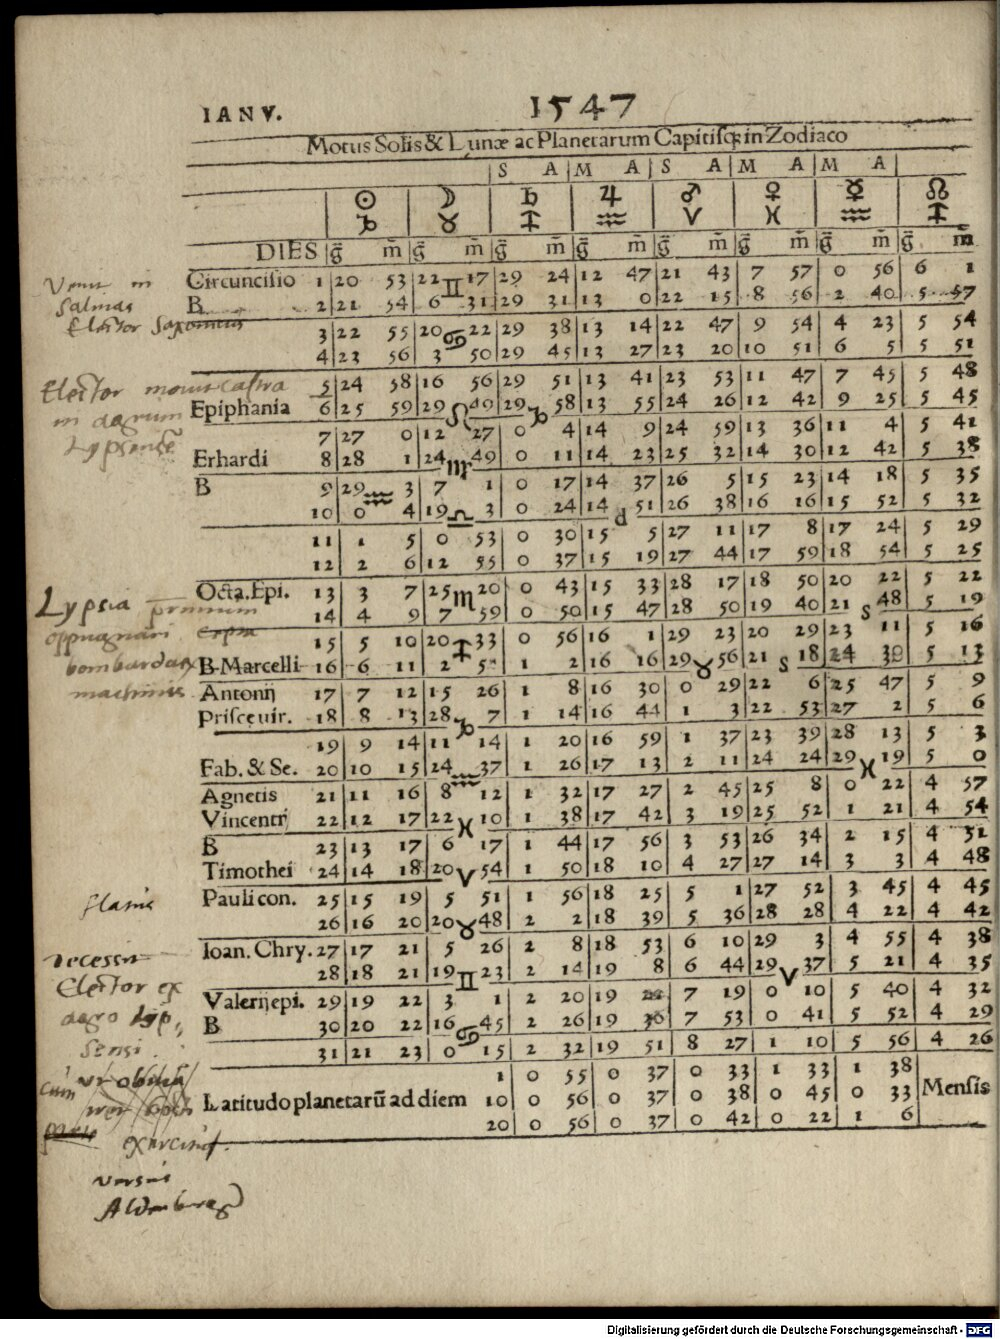 IANV. 1547
Motus Solis & Lunæ ac Planetarum Capitisq; in Zodiaco
S A M A S A M A M A
☉ ☽ ♄ ♃ ♂ ♀ ☿ ☊
♑ ♉ ♐ ♒ ♈ ♓ ♒ ♐
DIES g̃ m̃ g̃ m̃ g̃ m̃ g̃ m̃ g̃ m̃ g̃ m̃ g̃ m̃ g̃ m̃
Circuncisio 1 20 53 22 ♊ 17 29 24 12 47 21 43 7 57 0 56 6 1
B 2 21 54 6 31 29 31 13 0 22 15 8 56 2 40 5 57
3 22 55 20 ♋ 22 29 38 13 14 22 47 9 54 4 23 5 54
4 23 56 3 50 29 45 13 27 23 20 10 51 6 5 5 51
5 24 58 16 56 29 51 13 41 23 53 11 47 7 45 5 48
Epiphania 6 25 59 29 ♌ 49 29 ♑ 58 13 55 24 26 12 42 9 25 5 45
7 27 0 12 27 0 4 14 9 24 59 13 36 11 4 5 41
Erhardi 8 28 1 24 ♍ 49 0 11 14 23 25 32 14 30 12 42 5 38
B 9 29 ♒ 3 7 1 0 17 14 37 26 5 15 23 14 18 5 35
10 0 4 19 ♎ 3 0 24 14 d 51 26 38 16 16 15 52 5 32
11 1 5 0 53 0 30 15 5 27 11 17 8 17 24 5 29
12 2 6 12 55 0 37 15 19 27 44 17 59 18 54 5 25
Octa. Epi. 13 3 7 25 ♏ 20 0 43 15 33 28 17 18 50 20 22 5 22
14 4 9 7 59 0 50 15 47 28 50 19 40 21 s 48 5 19
15 5 10 20 ♐ 33 0 56 16 1 29 23 20 29 23 11 5 16
B Marcelli 16 6 11 2 1 2 16 16 29 ♉ 56 21 s 18 24 39 5 13
Antonij 17 7 12 15 26 1 8 16 30 0 29 22 6 25 47 5 9
Priscę uir. 18 8 13 28 ♑ 7 1 14 16 44 1 3 22 53 27 2 5 6
19 9 14 11 14 1 20 16 59 1 37 23 39 28 13 5 3
Fab. & Se. 20 10 15 24 ♒ 37 1 26 17 13 2 11 24 24 29 ♓ 19 5 0
Agnetis 21 11 16 8 12 1 32 17 27 2 45 25 8 0 22 4 57
Vincentij 22 12 17 22 ♓ 10 1 38 17 42 3 19 25 52 1 21 4 54
B 23 13 17 6 17 1 44 17 56 3 53 26 34 2 15 4 51
Timothei 24 14 18 20 ♈ 54 1 50 18 10 4 27 27 14 3 3 4 48
Pauli con. 25 15 19 5 51 1 56 18 25 5 1 27 52 3 45 4 45
26 16 20 20 ♉ 48 2 2 18 39 5 36 28 28 4 22 4 42
Ioan. Chry. 27 17 21 5 26 2 8 18 53 6 10 29 3 4 55 4 38
28 18 21 19 ♊ 23 2 14 19 8 6 44 29 ♈ 37 5 21 4 35
Valerij epi. 29 19 22 3 1 2 20 19 7 19 0 10 5 40 4 32
B 30 20 22 16 ♋ 45 2 26 19 36 7 53 0 41 5 52 4 29
31 21 23 0 15 2 32 19 51 8 27 1 10 5 56 4 26
1 0 55 0 37 0 33 1 33 1 38
Latitudo planetarũ ad diem 10 0 56 0 37 0 38 0 45 0 33 Mensis
20 0 56 0 37 0 42 0 22 1 6
in
Salinas
Elector Saxonicus
Elector mouit castra
in agrum
Lypsensē
Lypsia primum
oppugnari
bombardarū
machinis
recessit
Elector ex
agro Lip,
sensi
versus
Aldenburg
Digitalisierung gefördert durch die Deutsche Forschungsgemeinschaft - DFG